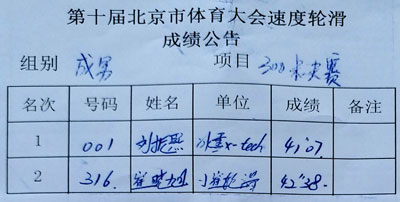 第十届北京市体育大会速度轮滑
成绩公告
组别 成男 项目 300米决赛
名次 号码 姓名 单位 成绩 备注
1 001 冰雪x-tech 41"07
2 316.